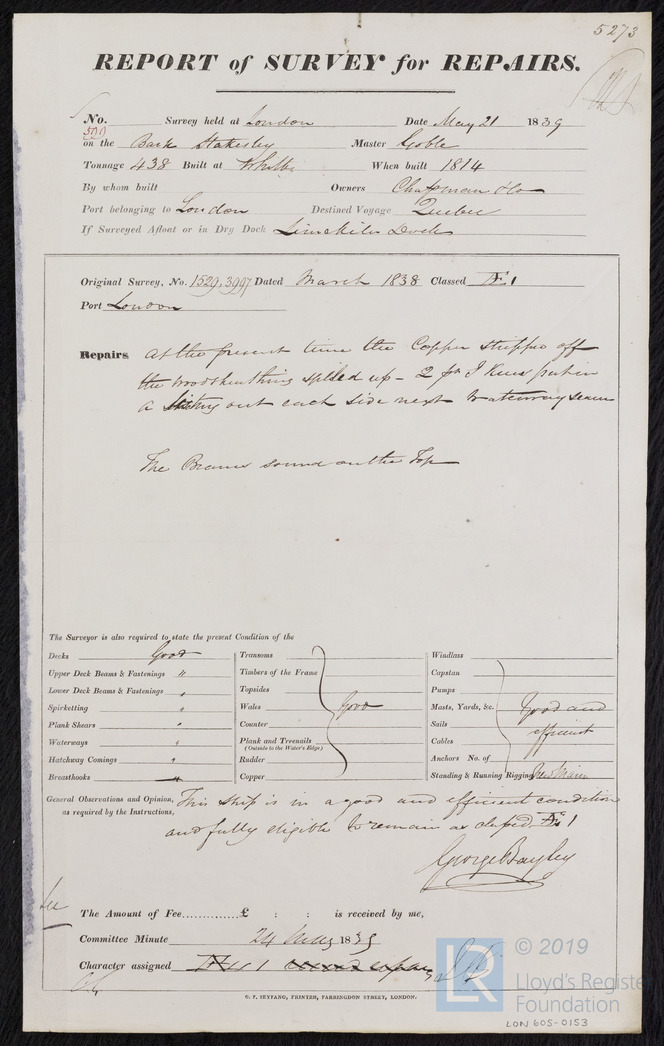 5273
REPORT of SURVEY for REPAIRS.
No. Survey held at London Date May 21 1839
on the Bark Stakesby Master Goble
Tonnage 438 Built at Whitby When built 1814
By whom built Owners Chapman & Co
Port belonging to London Destined Voyage Quebec
If Surveyed Afloat or in Dry Dock Limekiln Dock
Original Survey, No. 1529, 3997 Dated March 1838 Classed Æ 1
Port London
Repairs at the present time the Copper stripped off
the wood sheathing up - 2 pr I Knees put in
a out each side next Waterway seam
The Beams sound on the Top
The Surveyor is also required to state the present Condition of the
Decks Good
Upper Deck Beams & Fastenings "
Lower Deck Beams & Fastenings "
Spirketting "
Plank Shears "
Waterways "
Hatchway Comings "
Breasthooks "
Transoms
Timbers of the Frame
Topsides
Wales Good
Counter
Plank and Treenails
(Outside to the Water's Edge)
Rudder
Copper
Windlass
Capstan
Pumps
Masts, Yards, &c. Good and
Sails efficient
Cables
Anchors No. of
Standing & Running Rigging
General Observations and Opinion, This ship is in a good and efficient condition
as required by the Instructions, and fully eligible to remain as classed Æ 1
George Bayley
The Amount of Fee..............£ : : is received by me,
Committee Minute 24 May 1839
Character assigned
C. F. SEYFANG, PRINTER, FARRINGDON STREET, LONDON.
LR
© 2019
Lloyd's Registe
Foundation
LON 605-0153